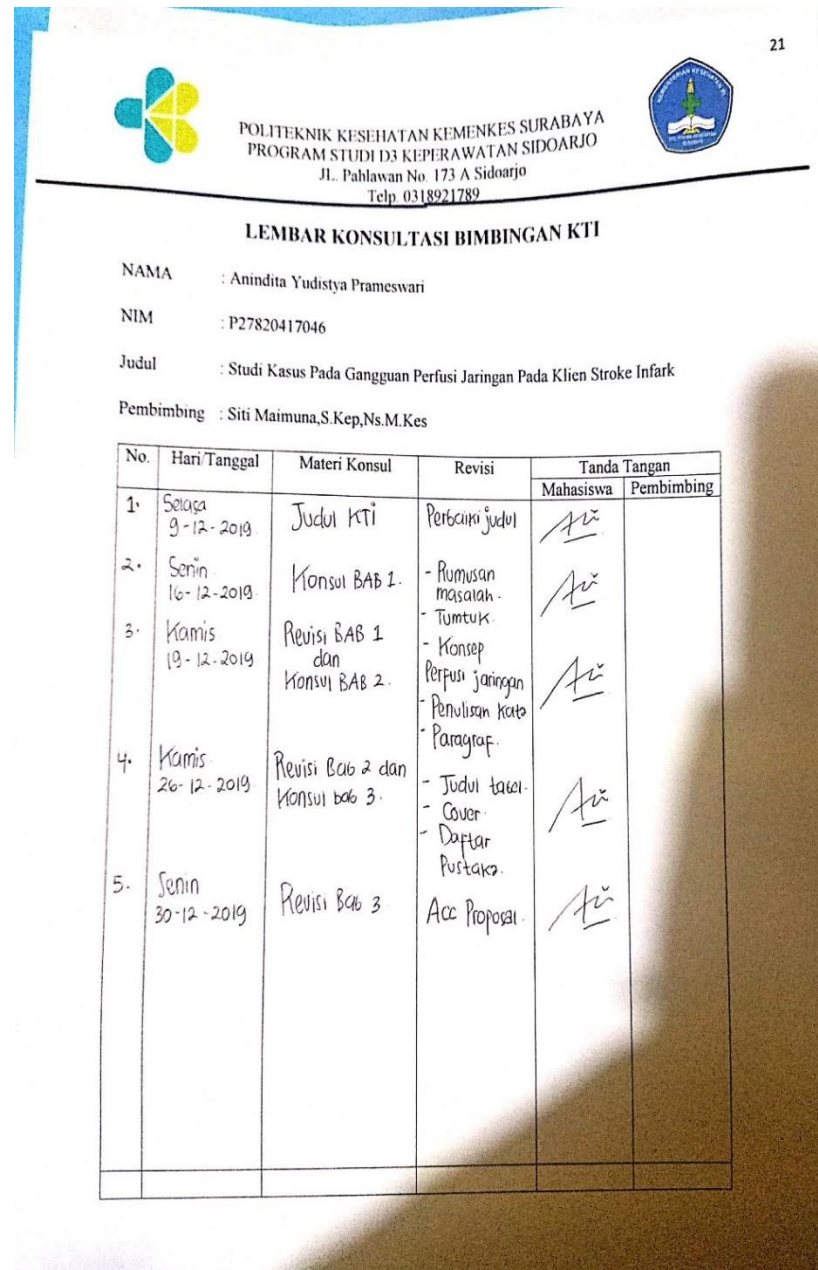 21
POLITEKNIK KESEHATAN KEMENKES SURABAYA
PROGRAM STUDI D3 KEPERAWATAN SIDOARJO
JL. Pahlawan No. 173 A Sidoarjo
Telp. 0318921789
LEMBAR KONSULTASI BIMBINGAN KTI
NAMA : Anindita Yudistya Prameswari
NIM : P27820417046
Judul : Studi Kasus Pada Gangguan Perfusi Jaringan Pada Klien Stroke Infark
Pembimbing : Siti Maimuna,S.Kep,Ns.M.Kes
No. Hari/Tanggal Materi Konsul Revisi Tanda Tangan
Mahasiswa Pembimbing
1. Selasa
9-12-2019 Judul KTI Perbaiki judul
2. Senin
16-12-2019 Konsul BAB 1. - Rumusan
masalah.
- Tumtuk.
3. Kamis
19-12-2019 Revisi BAB 1
dan
Konsul BAB 2. - Konsep
Perfusi jaringan
- Penulisan Kata
- Paragraf.
4. Kamis
26-12-2019 Revisi Bab 2 dan
Konsul bab 3. - Judul tabel.
- Cover.
- Daftar
Pustaka.
5. Senin
30-12-2019 Revisi Bab 3 Acc Proposal.